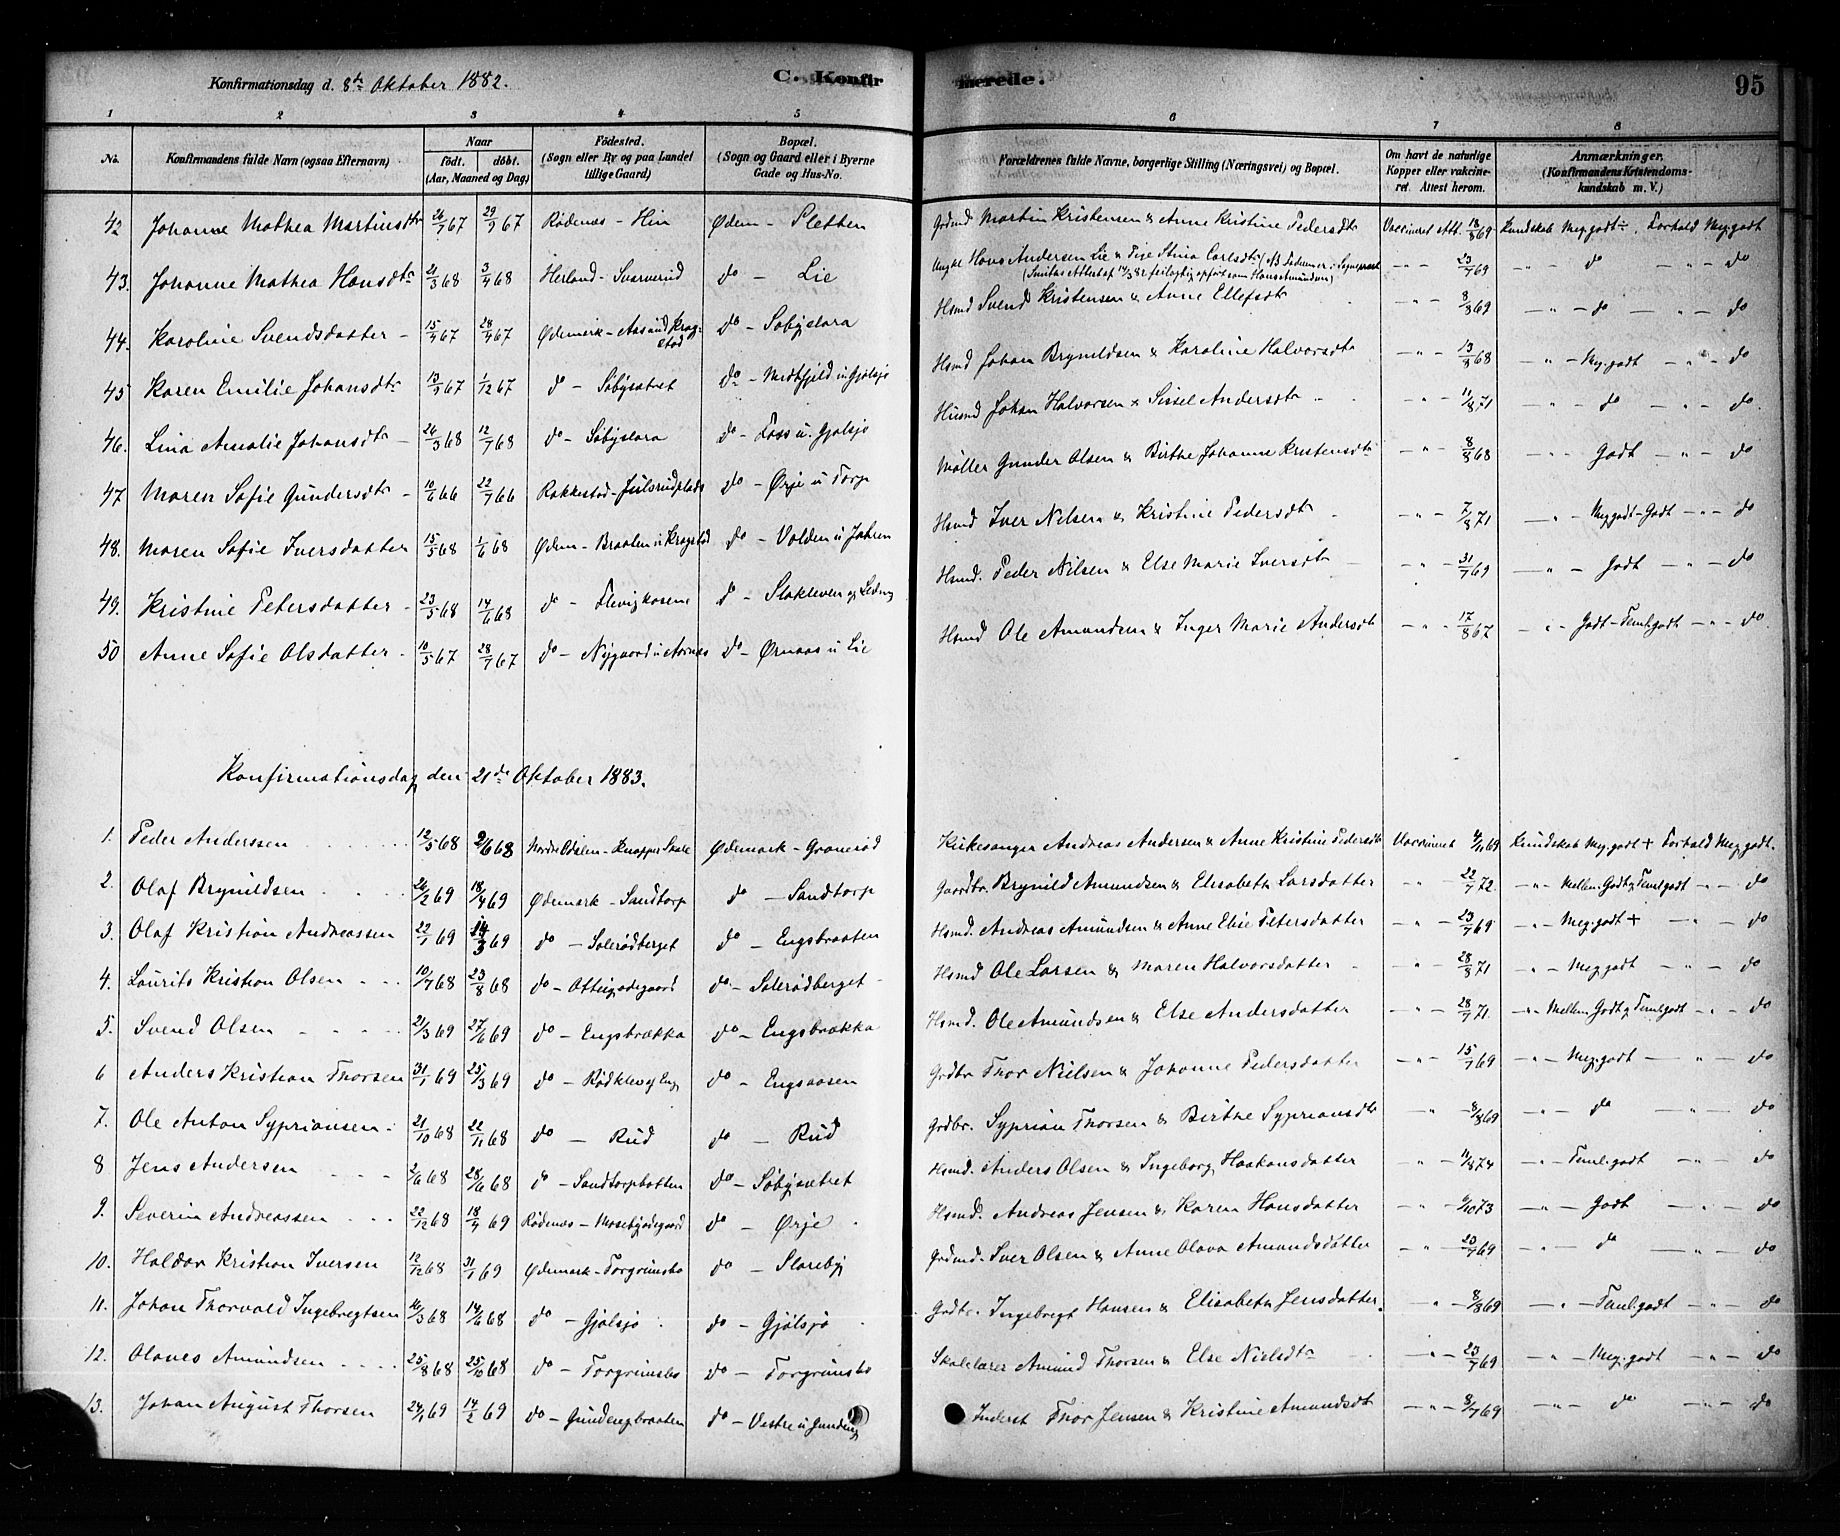 Konfirmationsdag d. 8de Oktober 1882. C. Konfirmerede. 95
1 2 3 4 5 6 7 8
No. Konfirmandens fulde Navn (ogsaa Efternavn) Naar født. døbt. (Aar, Maaned og Dag) Fødested. (Sogn eller By og paa Landet tillige Gaard) Bopæl. (Sogn og Gaard eller i Byerne Gade og Hus-No. Forældrenes fulde Navne, borgerlige Stilling (Næringsvei) og Bopæl. Om havt de naturlige Kopper eller vakcineret. Attest herom. Anmærkninger. (Konfirmandens Kristendomskundskab m. V.)
42 Johanne Mathea Martinsdtr 26/7 67 29/9 67 Rødenæs - Hin Ødem - Sletten Grdmd Martin Kristensen & Anne Kristine Pedersdtr Vaccineret Att. 18/8 69 Kundskab Meg. godt ÷. Forhold Meg. godt
43. Johanne Mathea Hansdtr 21/3 68 3/4 68 Herland - Svarverud do - Lie Ungkl Hans Andersen Lie & Pige Stina Carlsdtr - " - 23/7 69 - " - do - " - do
44. Karoline Svendsdatter - 15/4 67 28/4 67 Ødemark - Aasund Kragstad do - Søbyslora Hsmd Svend Kristensen & Anne Ellefsdtr - " - 8/8 69 - " - do - " - do
45 Karen Emilie Johansdtr 13/9 67 1/12 67 do - Søbysætret do - Midtfjeld u Gjølsjø Hsmd Johan Brynildsen & Karoline Halvorsdtr - " - 13/8 68 - " - Meg. godt - " - do
46. Lina Amalie Johansdtr - 26/3 68 12/7 68 do - Søbyslora do - Foss u. Gjølsjø Husmd Johan Halvorsen & Sissel Andersdtr - " - 11/8 71 - " - do - " - do
47 Maren Sofie Gundersdtr - 10/6 66 22/7 66 Rakkestad - Julsrudplads do - Ørje u Torp Møller Gunder Olsen & Birthe Johanne Kristensdtr - " - 8/8 68 - " - Godt - " - do
48. Maren Sofie Iversdatter 15/5 68 1/6 68 Ødem - Braaten u Kragstad do - Volden u Jahren Hsmd Iver Nilsen & Kristine Pedersdtr - " - 7/8 71 - " - Meg. godt - Godt - " - do
49. Kristine Petersdatter - 23/5 68 14/6 68 do - Slevigkosene do - Slakleven Hsmd. Peder Nilsen & Else Marie Iversdtr - " - 31/7 69 - " - Godt - " - do
50 Anne Sofie Olsdatter - 10/5 67 28/7 67 do - Nygaard u Aarnæs do - Ørnaas u Lie Hsmd Ole Amundsen & Inger Marie Andersdtr - " - 17/8 67 - " - Godt - Teml. godt - " - do.
Konfirmationsdag den 21de Oktober 1883.
1. Peder Anderssen 12/5 68 2/6 68 Nordre Odalen - Knapper Skole Ødemark - Gronerød Kirkesanger Andreas Andersen & Anne Kristine Pedersdtr Vaccineret 4/11 69 Kundskab Meg. godt + Forhold Meg. godt.
2. Olaf Brynildsen 24/2 69 18/4 69 Ødemark - Sandtorp do - Sandtorp Gaardbr. Brynild Amundsen & Elisabeth Larsdatter - " - 22/7 72. - " - Mellem Godt og Teml. godt - " - do
3. Olaf Kristian Andreassen 22/1 69 14/3 69 do - Solerødberget do - Engsbraaten Hsmd. Andreas Amundsen & Anne Elise Petersdatter - " - 23/7 69 - " - Meg. godt + - " - do
4. Laurits Kristian Olsen 10/7 68 23/8 68 do - Otteigødegaard do - Solerødberget - Hsmd Ole Larsen & Maren Halvorsdatter - " - 28/8 71 - " - Meg. godt - " - do
5. Svend Olsen 21/3 69 27/6 69 do - Engsbrækka do - Engsbrækka Hsmd. Ole Amundsen & Else Andersdatter - " - 28/7 71. - " - Mellem Godt og Teml. godt - " - do
6 Anders Kristian Thorsen 31/1 69 25/3 69 do - Rødklev af Eng do - Engsaasen Grdbr Thor Nielsen & Johanne Pedersdatter - " - 15/7 69 - " - Meg. godt - " - do
7. Ole Anton Syprianssen. 21/10 68 22/11 68 do - Rud do - Rud Grdbr. Syprian Thorsen & Birthe Sypriansdtr - " - 8/8 69 - " - do - " - do
8. Jens Andersen 2/6 68 28/6 68 do - Sandtorpbatten do - Søbysætret Hsmd. Anders Olsen & Ingeborg Haakonsdatter - " - 11/8 74 - " - Teml. godt - " - do
9. Severin Andreassen 22/12 68 18/4 69 Rødenæs - Mosebyødegaard do - Ørje Hsmd. Andreas Jensen & Karen Hansdatter - " - 6/10 73 - " - Godt - " - do
10. Haldor Kristian Iversen 12/12 68 31/1 69 Ødemark - Torgrimsbø do - Sloreby Grdmd. Iver Olsen & Anne Olava Amundsdatter - " - 23/7 69 - " - do - " - do
11. Johan Thorvald Ingebregtsen 16/3 68 14/6 68 do - Gjølsjø do - Gjølsjø Grdbr. Ingebregt Hansen & Elisabeth Jensdatter. - " - 8/8 69 - " - Teml. godt - " - do
12. Olaves Amundsen 25/8 68 25/10 68 do - Torgrimsbø do - Torgrimsbø Skolelærer Amund Thorsen & Else Nielsdtr - " - 23/7 69 - " - Meg. godt - " - do
13. Johan August Thorsen 24/1 69 14/2 69 do - Gunderegbraaten do - Vestre u Gundereg Inderst Thor Jensen & Kristine Amundsdtr - " - 8/7 69 - " - do - " - do